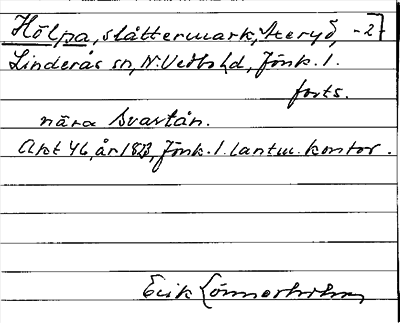 Hölpa, slåttermark, Åeryd, -27
Linderås sn, N. Vedbo hd, Jönk. l.
forts.
nära Svartån.
Akt 46, år 1823, Jönk. l. lantm. kontor.
Erik Lönnerholm